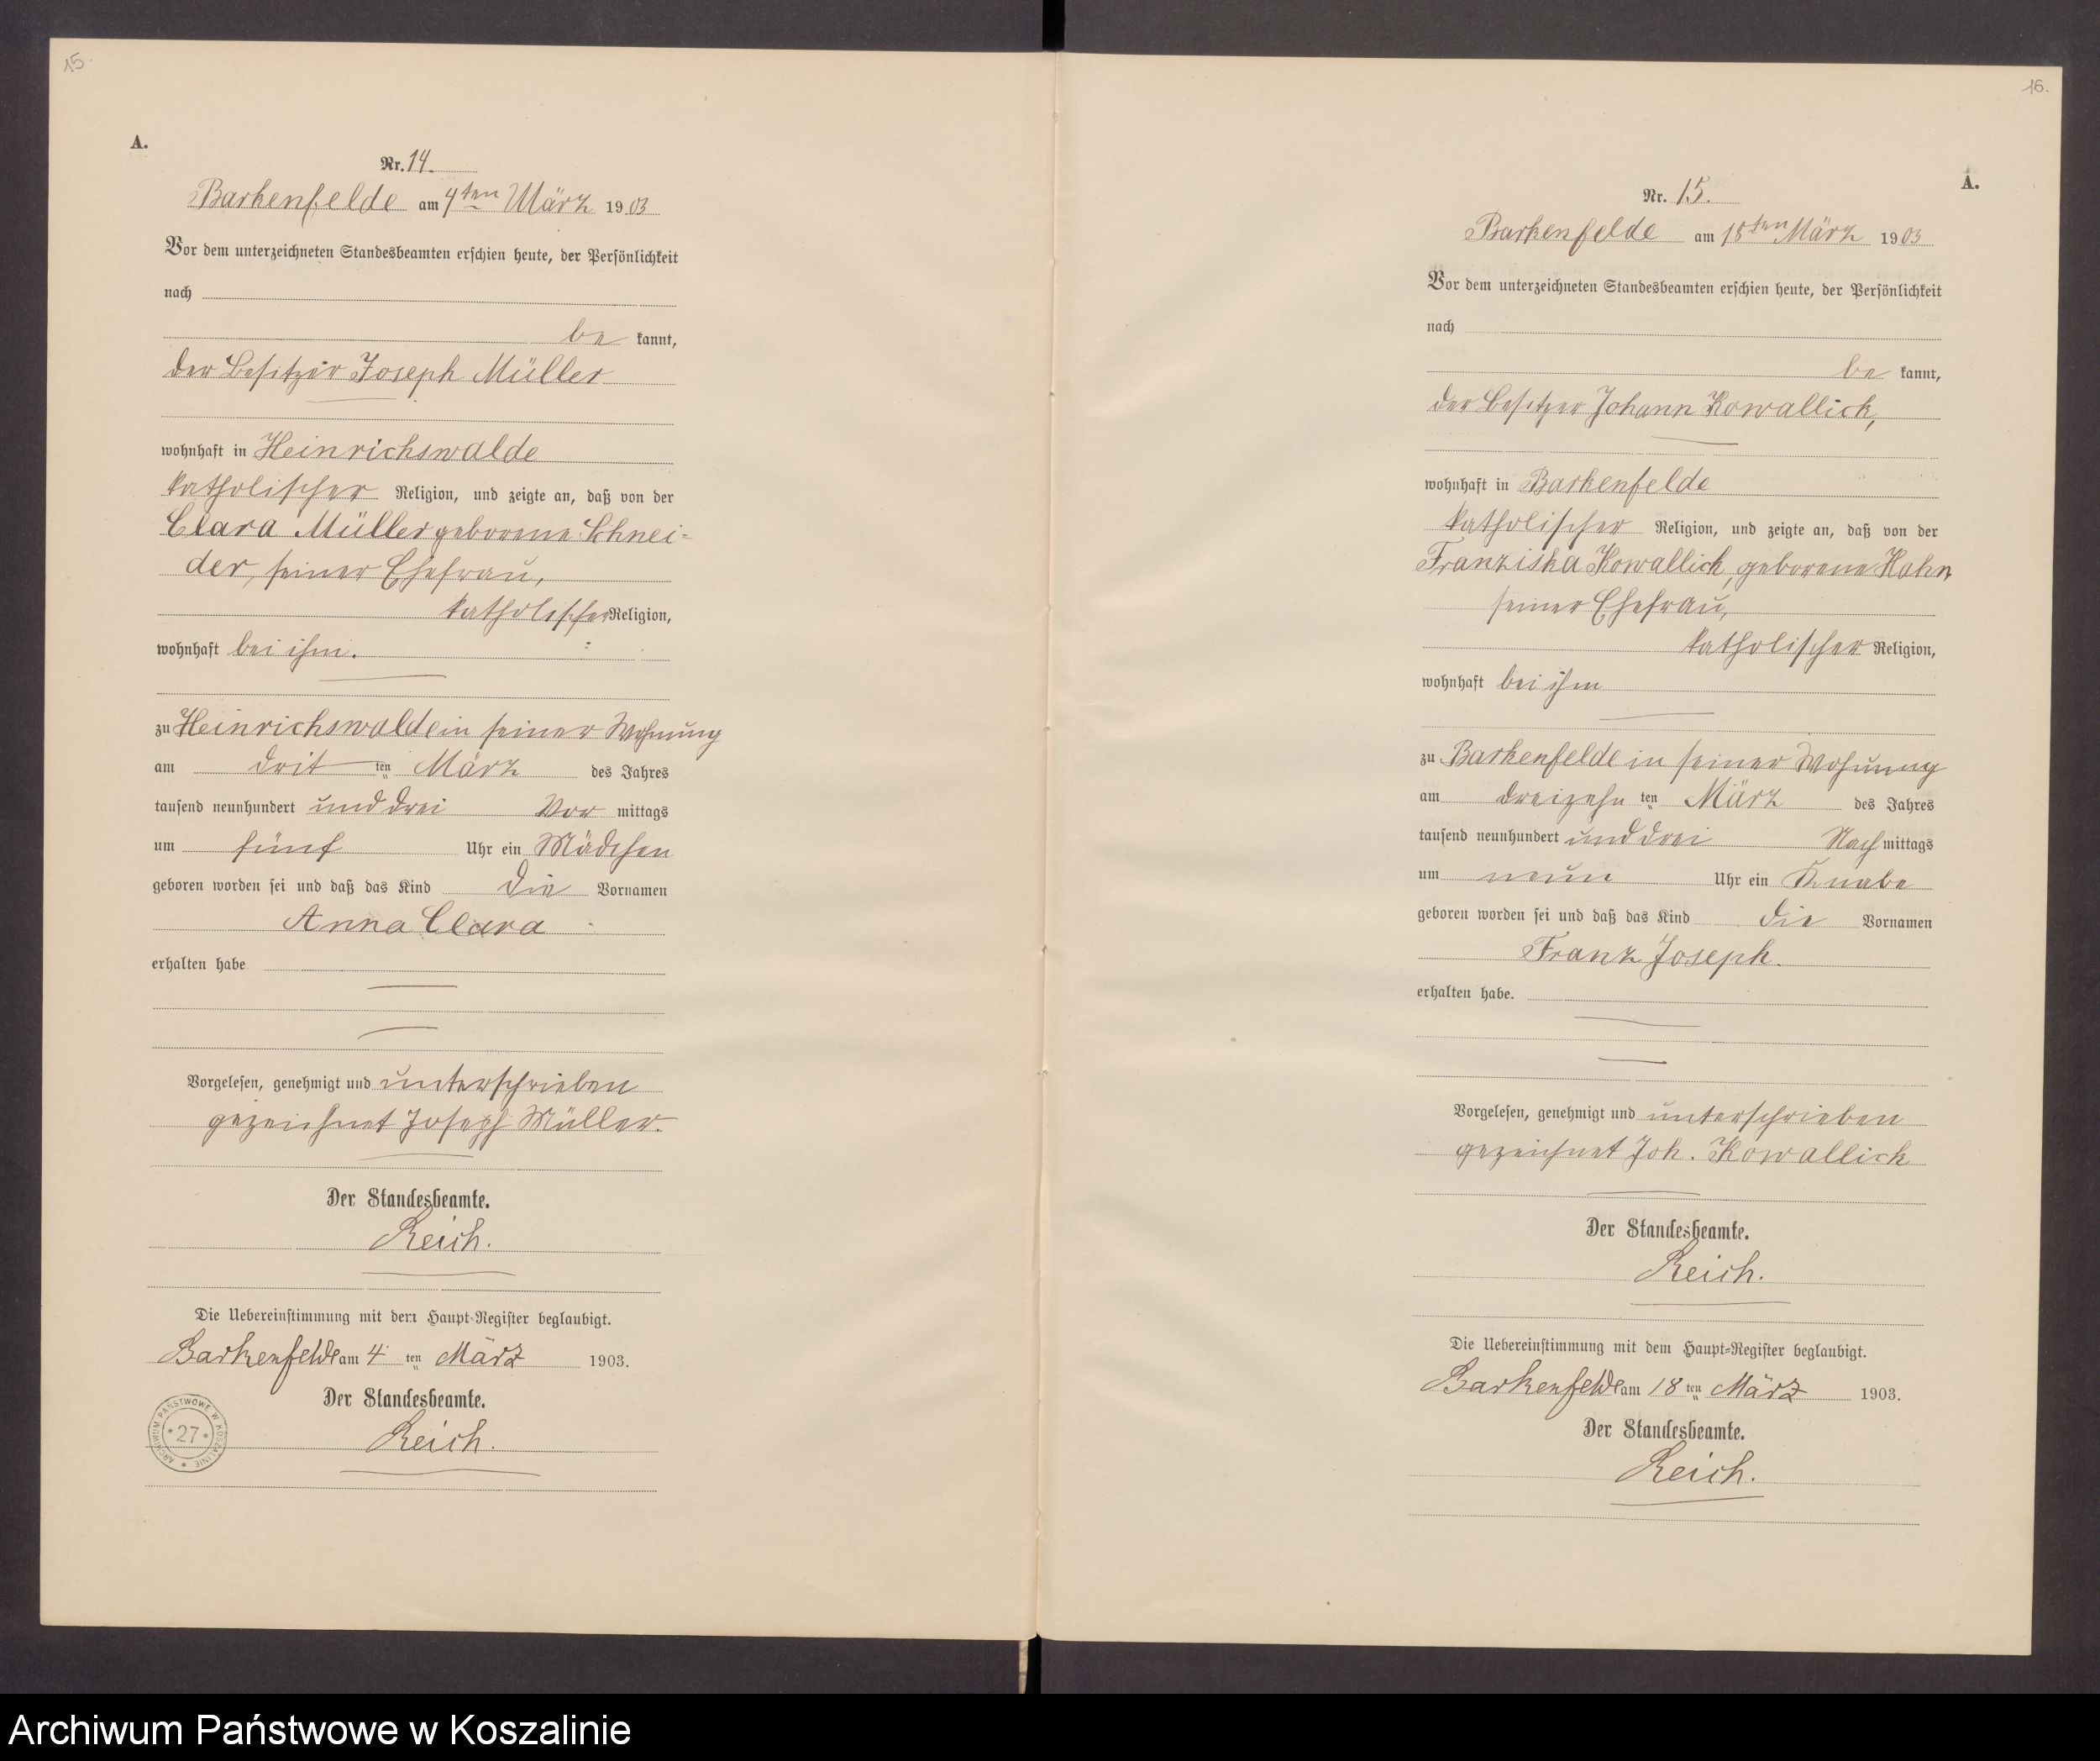 15.
A.
Nr. 14.
Barkenfelde am 4ten März 1903
Vor dem unterzeichneten Standesbeamten erschien heute, der Persönlichkeit
nach
be kannt,
der Besitzer Joseph Müller
wohnhaft in Heinrichswalde
katholischer Religion, und zeigte an, daß von der
Clara Müller geborene Schnei-
der, seiner Ehefrau,
katholischer Religion,
wohnhaft bei ihm.
zu Heinrichswalde in seiner Wohnung
am dritten März des Jahres
tausend neunhundert und drei Vor mittags
um fünf Uhr ein Mädchen
geboren worden sei und daß das Kind die Vornamen
Anna Clara
erhalten habe
Vorgelesen, genehmigt und unterschrieben
gezeichnet Joseph Müller.
Der Standesbeamte.
Reich.
Die Uebereinstimmung mit dem Haupt-Register beglaubigt.
Barkenfelde am 4 ten März 1903.
Der Standesbeamte.
Reich.
ARCHIWUM PAŃSTWOWE W KOSZALINIE
* 27 *
16.
A.
Nr. 15.
Barkenfelde am 18ten März 1903
Vor dem unterzeichneten Standesbeamten erschien heute, der Persönlichkeit
nach
be kannt,
der Besitzer Johann Kowallick,
wohnhaft in Barkenfelde
katholischer Religion, und zeigte an, daß von der
Franziska Kowallick, geborene Hahn
seiner Ehefrau,
katholischer Religion,
wohnhaft bei ihm
zu Barkenfelde in seiner Wohnung
am dreizehn ten März des Jahres
tausend neunhundert und drei Nach mittags
um neun Uhr ein Knabe
geboren worden sei und daß das Kind die Vornamen
Franz Joseph.
erhalten habe.
Vorgelesen, genehmigt und unterschrieben
gezeichnet Joh. Kowallick
Der Standesbeamte.
Reich.
Die Uebereinstimmung mit dem Haupt-Register beglaubigt.
Barkenfelde am 18 ten März 1903.
Der Standesbeamte.
Reich.
Archiwum Państwowe w Koszalinie